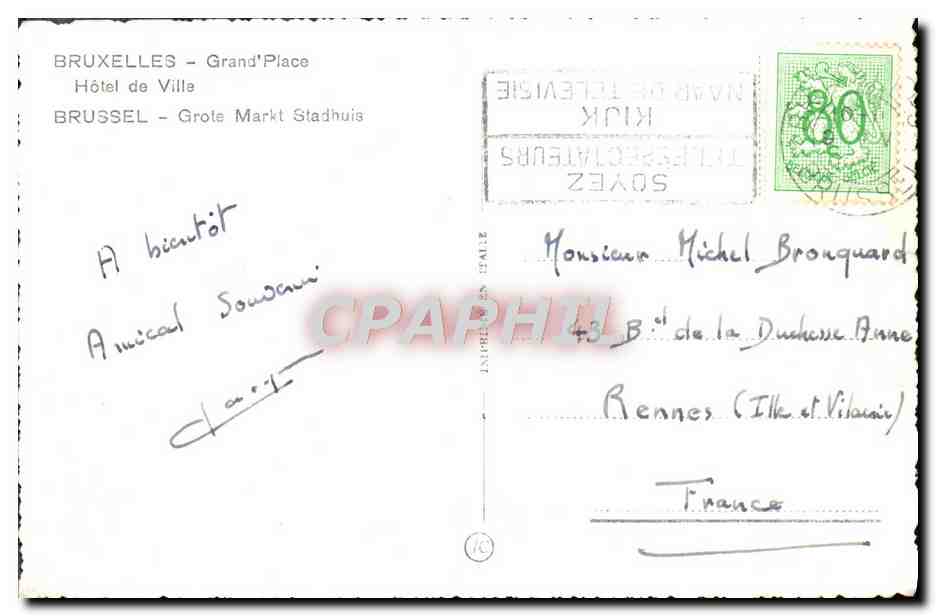 BRUXELLES – Grand'Place
Hôtel de Ville
BRUSSEL – Grote Markt Stadhuis
A bientôt
Amical Souvenir
SOYEZ
TELESPECTATEURS
KIJK
NAAR DE TELEVISIE
80
BELGIQUE-BELGIË
IMPRIME EN ITALIE
Monsieur Michel Bronquard
43 Bd de la Duchesse Anne
Rennes (Ille et Vilaine)
France
10
CPAPHIL